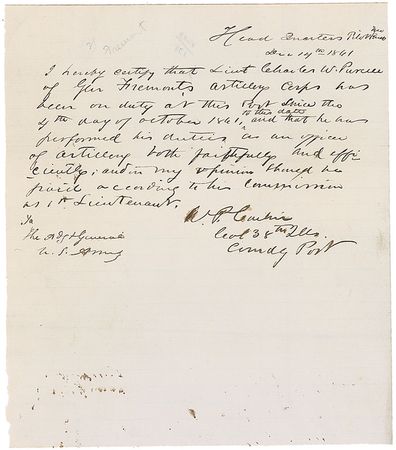 Fremont
Head Quarters
Dec 14th 1861
I hereby certify that Lieut Charles W. Purcell
of Gen Fremont's artillery Corps has
been on duty at this Post since the
4th day of October 1861, to this date and that he has
performed his duties as an officer
of artillery both faithfully and effi-
ciently; and in my opinion should be
paid according to his commission
as 1st Lieutenant.
To
The Adjt General
U. S. Army
W. P. Carlin
Col 38th Ills.
Comdg Post